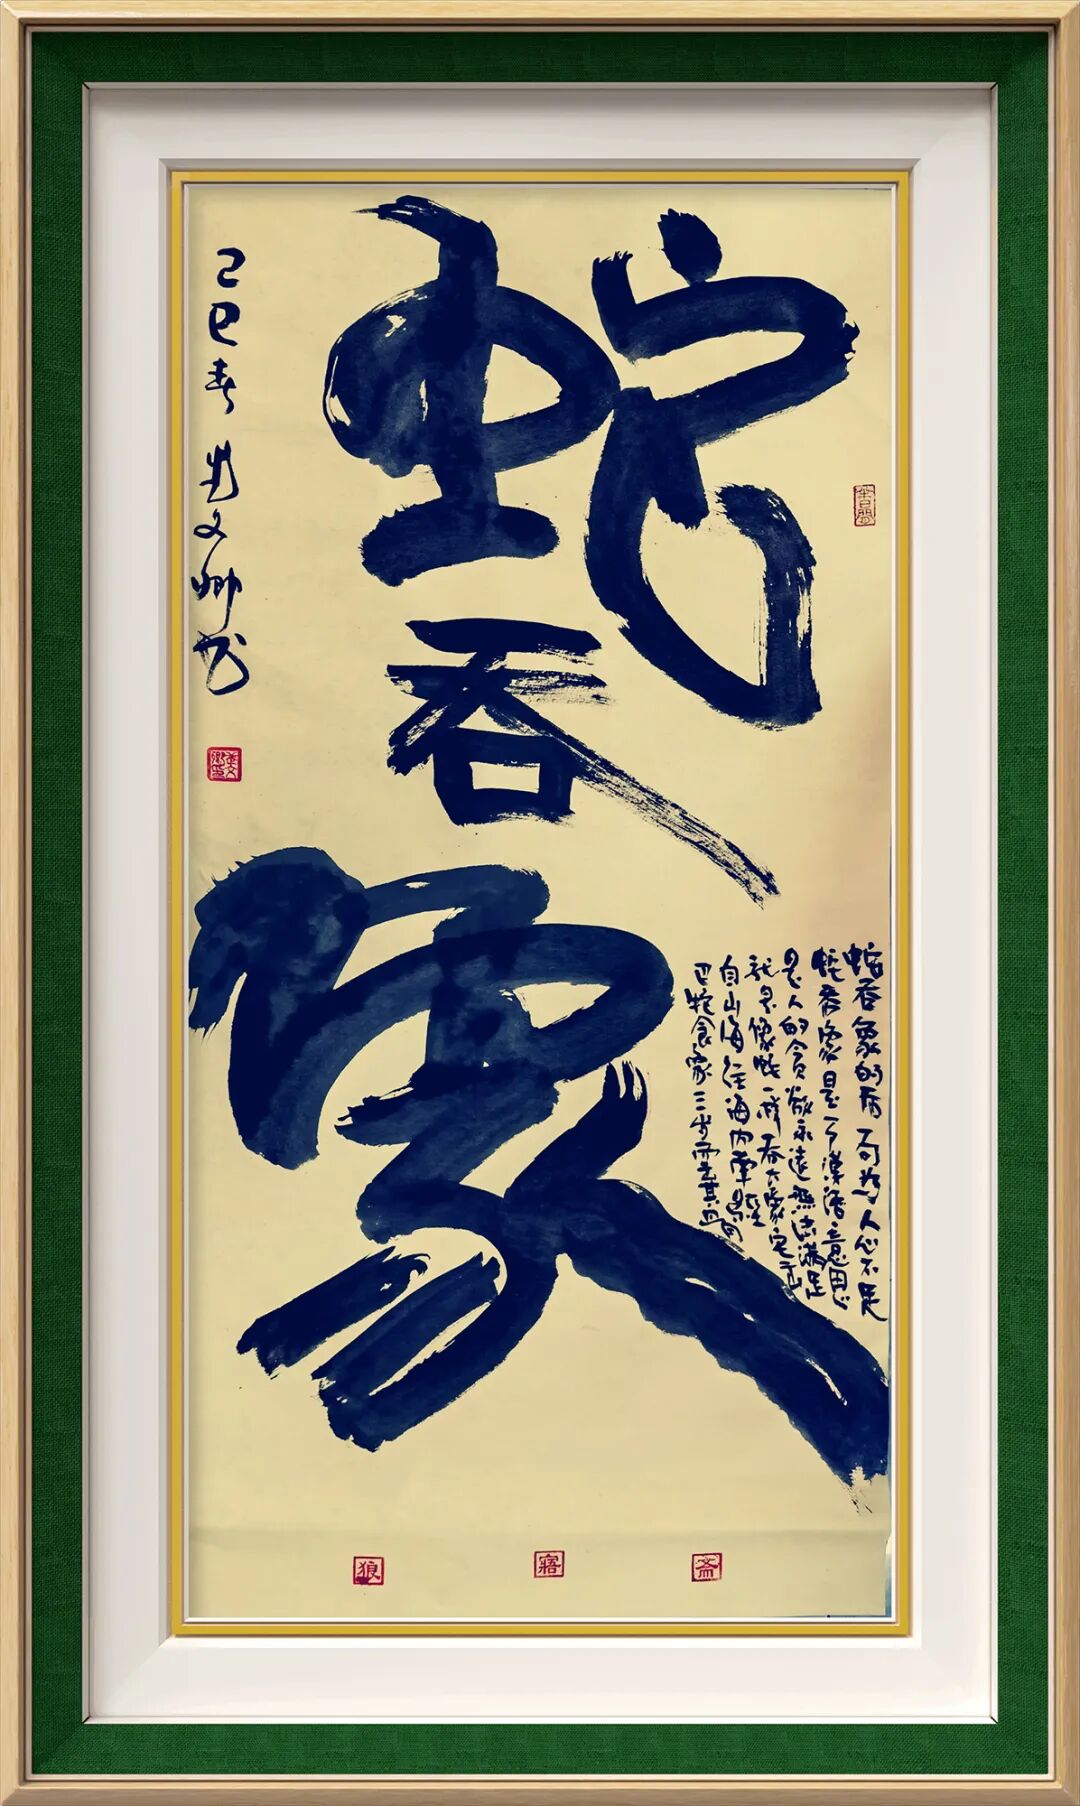 蛇吞象
蛇吞象的后一句为人心不足
蛇吞象是一个汉语意思
是人的贪欲永远无法满足
就是像蛇一样吞大象它出
自山海经海内南经
巴蛇食象三岁而出其骨
己巳春 文卿书
狼
寤
斋